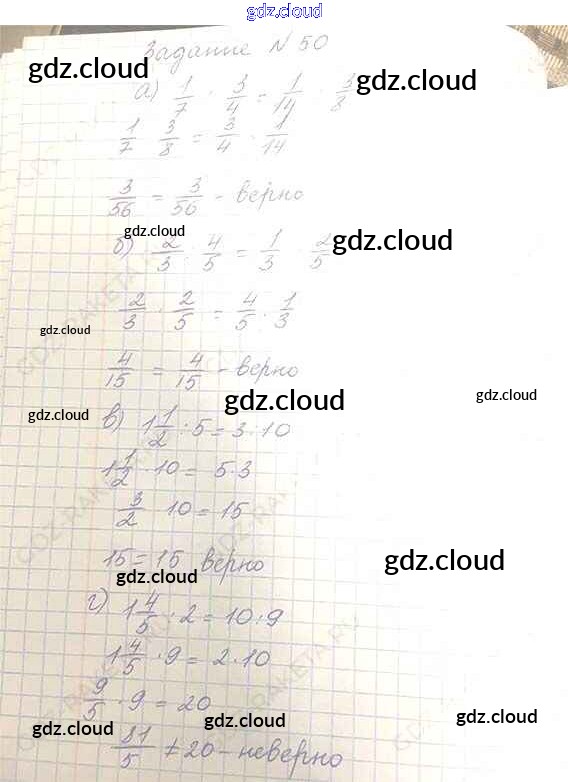 gdz.cloud
Задание N 50
gdz.cloud
gdz.cloud
а) 1/7 : 3/4 = 1/14 : 3/8
1/7 · 3/8 = 3/4 · 1/14
3/56 = 3/56 - верно
gdz.cloud
gdz.cloud
б) 2/3 : 4/5 = 1/3 : 2/5
2/3 · 2/5 = 4/5 · 1/3
gdz.cloud
4/15 = 4/15 - верно
gdz.cloud
gdz.cloud
gdz.cloud
в) 1 1/2 : 5 = 3 : 10
1 1/2 · 10 = 5 · 3
3/2 · 10 = 15
15 = 15 верно
gdz.cloud
gdz.cloud
г) 1 4/5 : 2 = 10 : 9
1 4/5 · 9 = 2 · 10
9/5 · 9 = 20
gdz.cloud
gdz.cloud
gdz.cloud
81/5 ≠ 20 - неверно
GDZ-RAKETA.RU